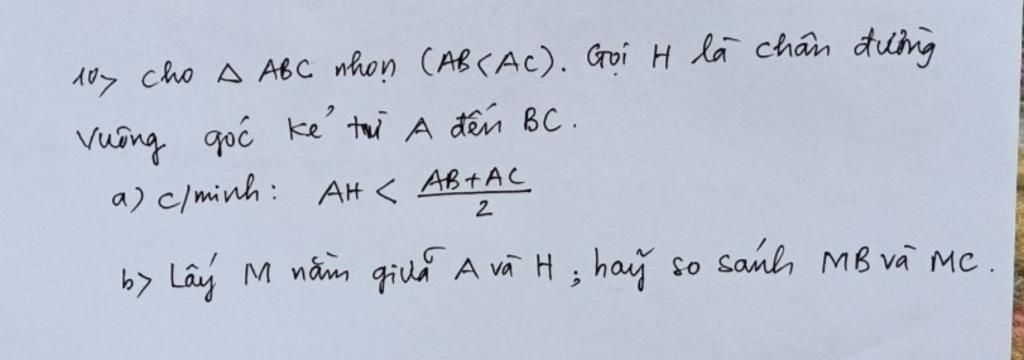 10> Cho Δ ABC nhọn (AB < AC). Gọi H là chân đường
vuông góc kẻ từ A đến BC.
a) c/minh: AH < \frac{AB+AC}{2}
b> Lấy M nằm giữa A và H; hãy so sánh MB và MC.